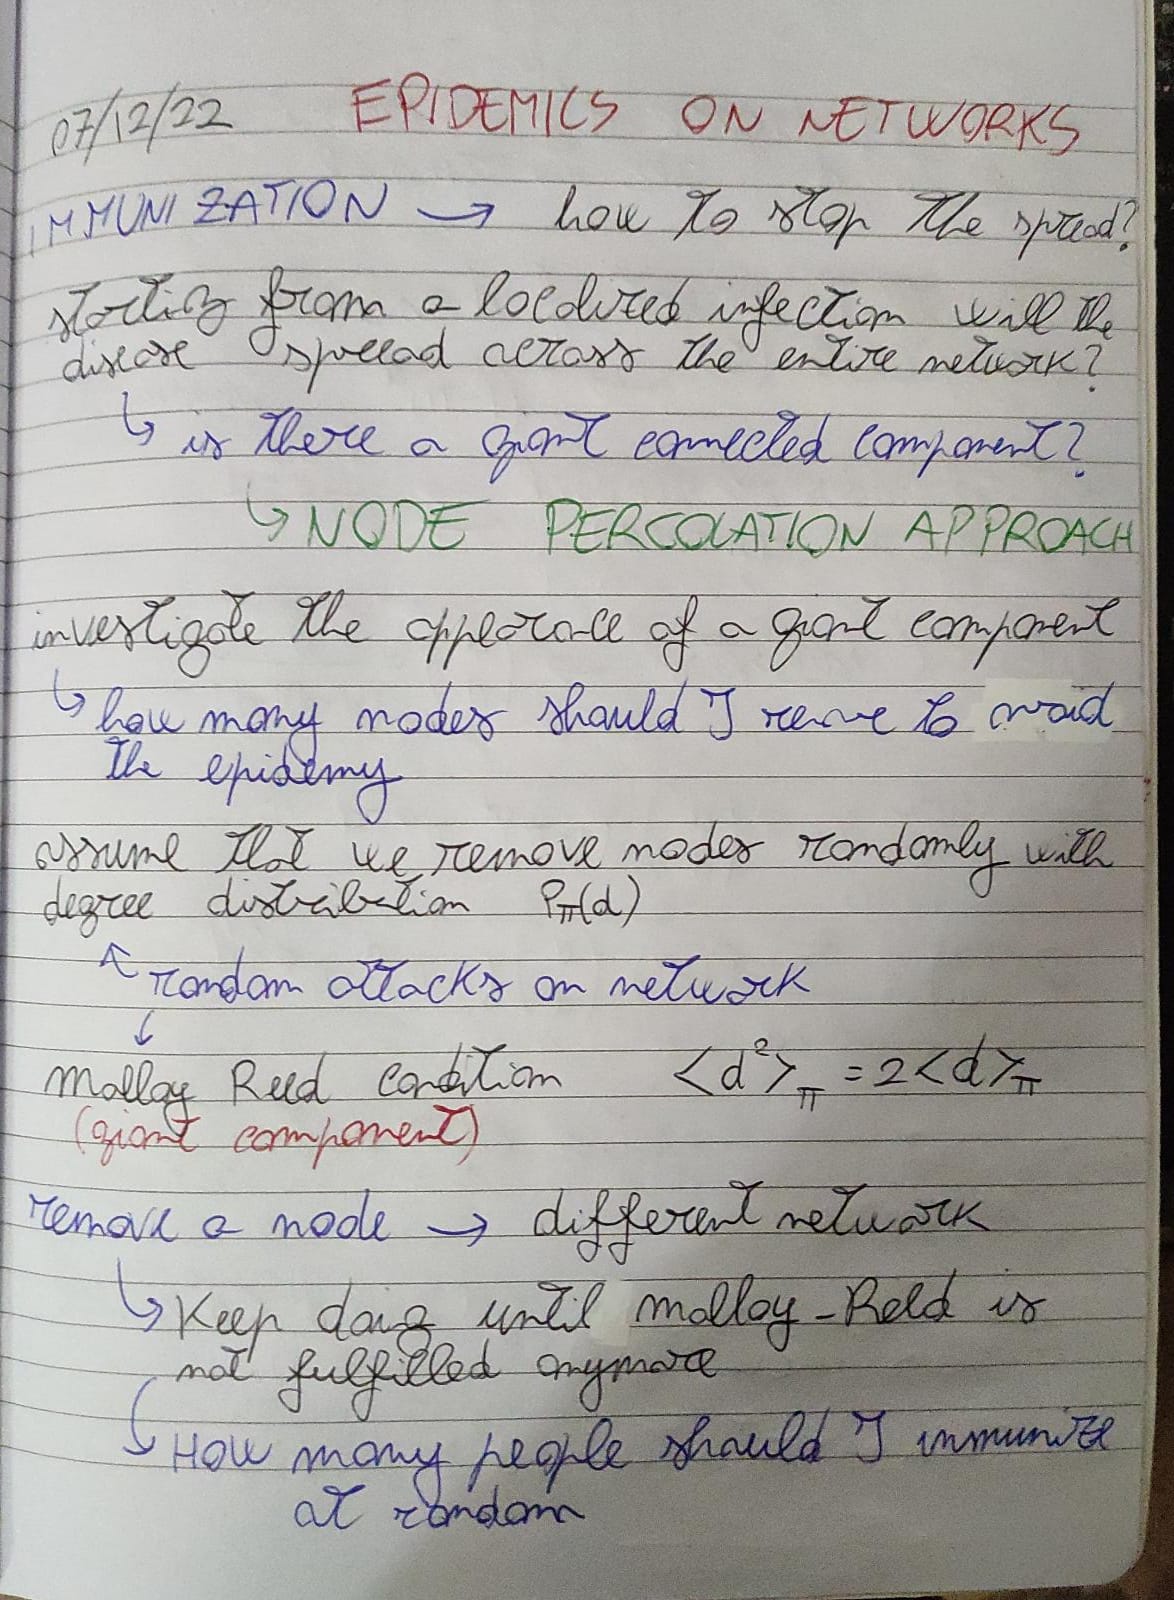 07/12/22 EPIDEMICS ON NETWORKS
IMMUNIZATION → how to stop the spread?
starting from a localized infection will the
disease spread across the entire network?
↳ is there a giant connected component?
↳ NODE PERCOLATION APPROACH
investigate the appearance of a giant component
↳ how many nodes should I remove to avoid
the epidemy
assume that we remove nodes randomly with
degree distribution Pπ(d)
↖ random attacks on network
↓
Molloy Reed condition <d²>π = 2<d>π
(giant component)
remove a node → different network
↳ Keep doing until molloy-Reed is
not fulfilled anymore
↳ How many people should I immunize
at random